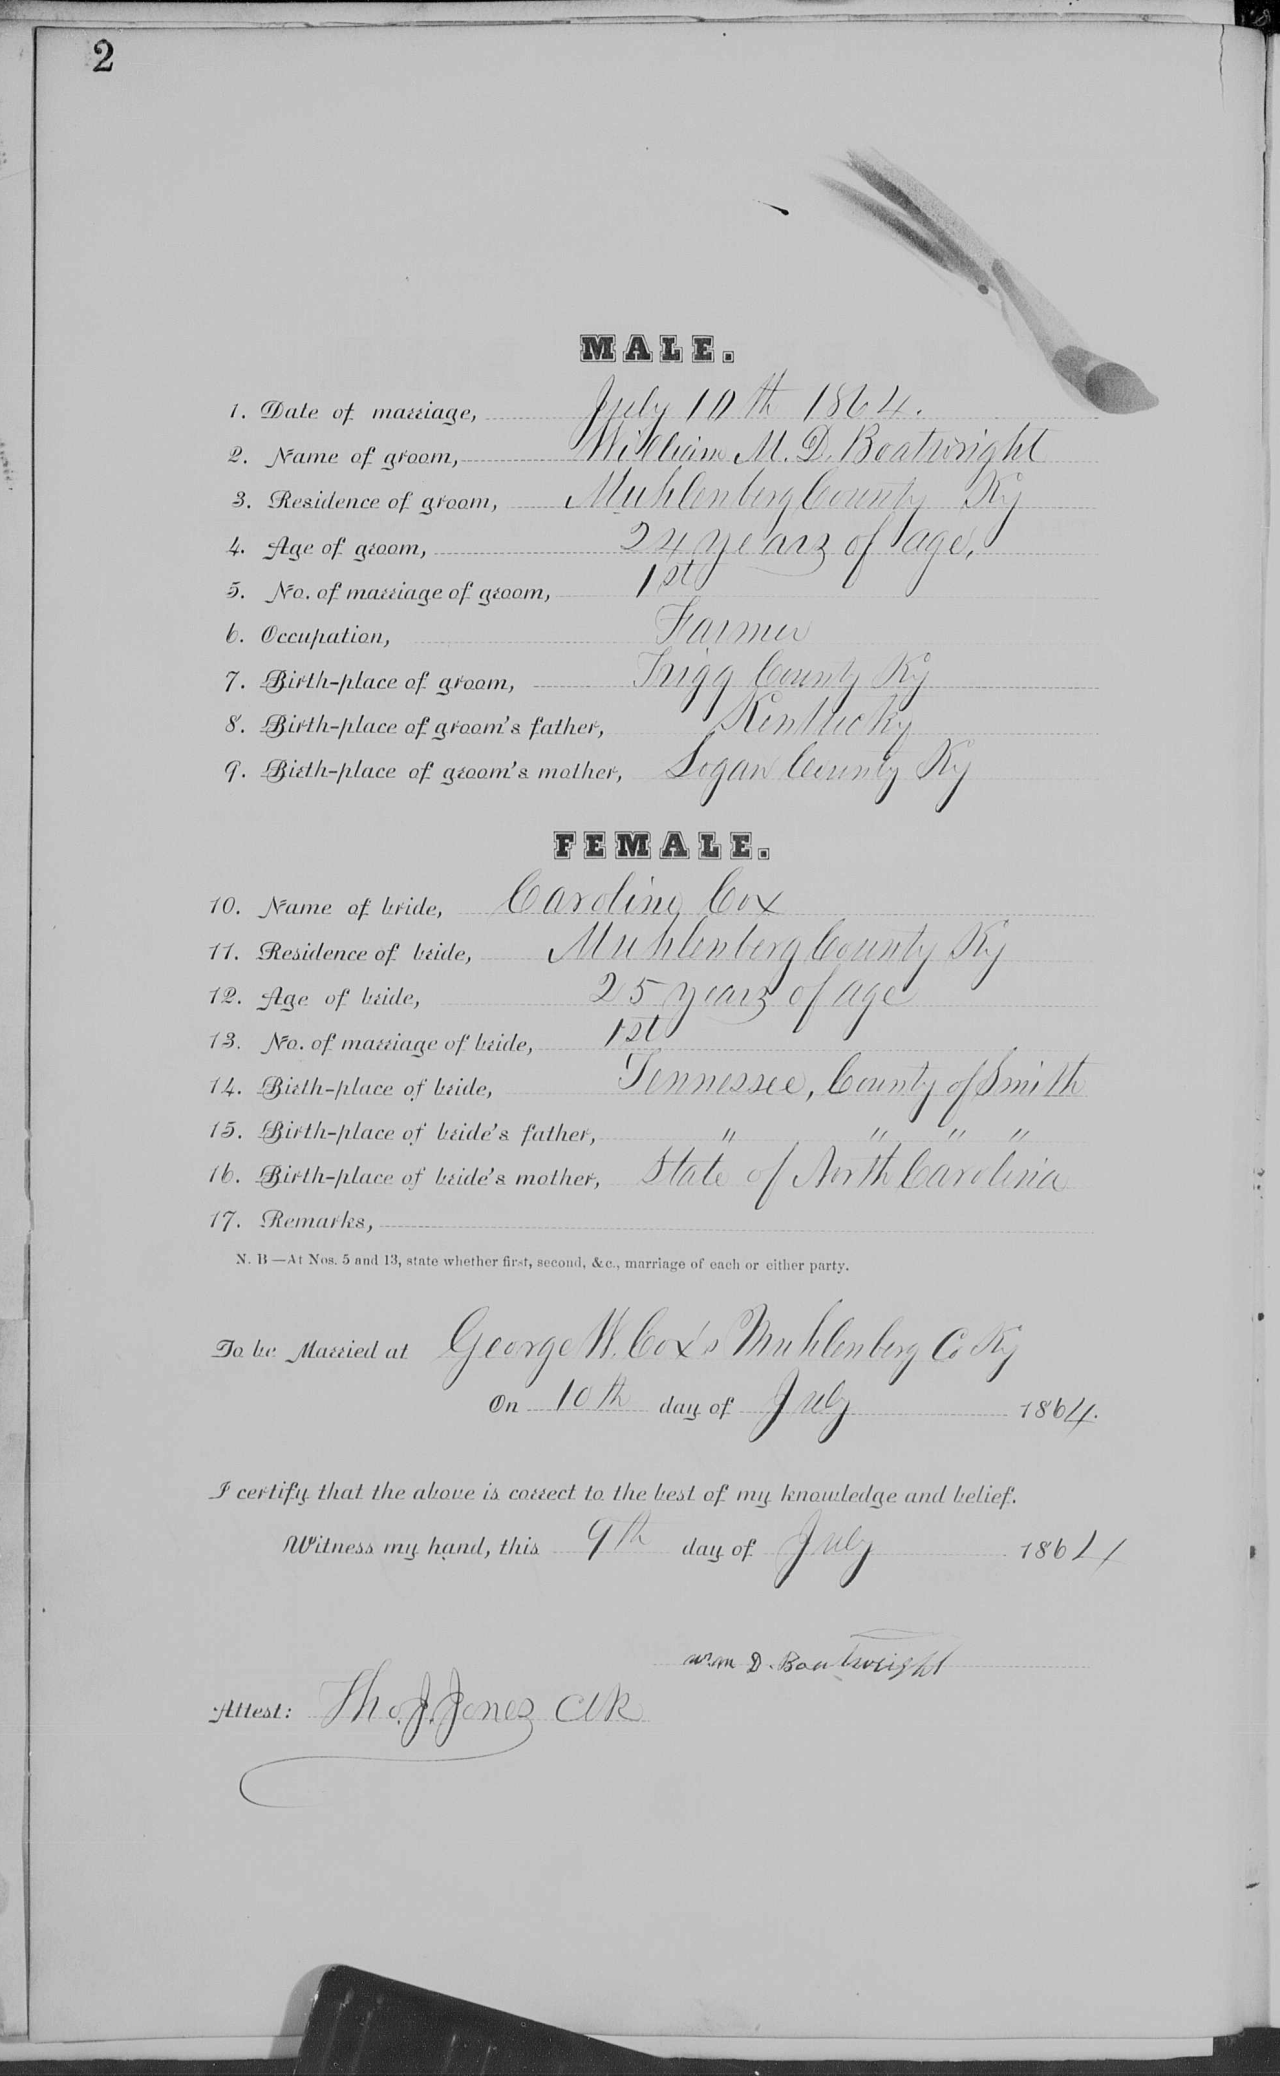 2
MALE.
1. Date of marriage, July 10th 1864.
2. Name of groom, William M. D. Boatwright
3. Residence of groom, Muhlenberg County Ky
4. Age of groom, 24 years of age,
5. No. of marriage of groom, 1st
6. Occupation, Farmer
7. Birth-place of groom, Trigg County Ky
8. Birth-place of groom's father, Kentucky
9. Birth-place of groom's mother, Logan County Ky
FEMALE.
10. Name of bride, Caroline Cox
11. Residence of bride, Muhlenberg County Ky
12. Age of bride, 25 years of age
13. No. of marriage of bride, 1st
14. Birth-place of bride, Tennessee, County of Smith
15. Birth-place of bride's father, " " " "
16. Birth-place of bride's mother, State of North Carolina
17. Remarks,
N. B—At Nos. 5 and 13, state whether first, second, &c., marriage of each or either party.
To be Married at George W. Cox's Muhlenberg Co Ky
On 10th day of July 1864.
I certify that the above is correct to the best of my knowledge and belief.
Witness my hand, this 9th day of July 1864
Wm D. Boatwright
Attest: Tho. J. Jones Clk